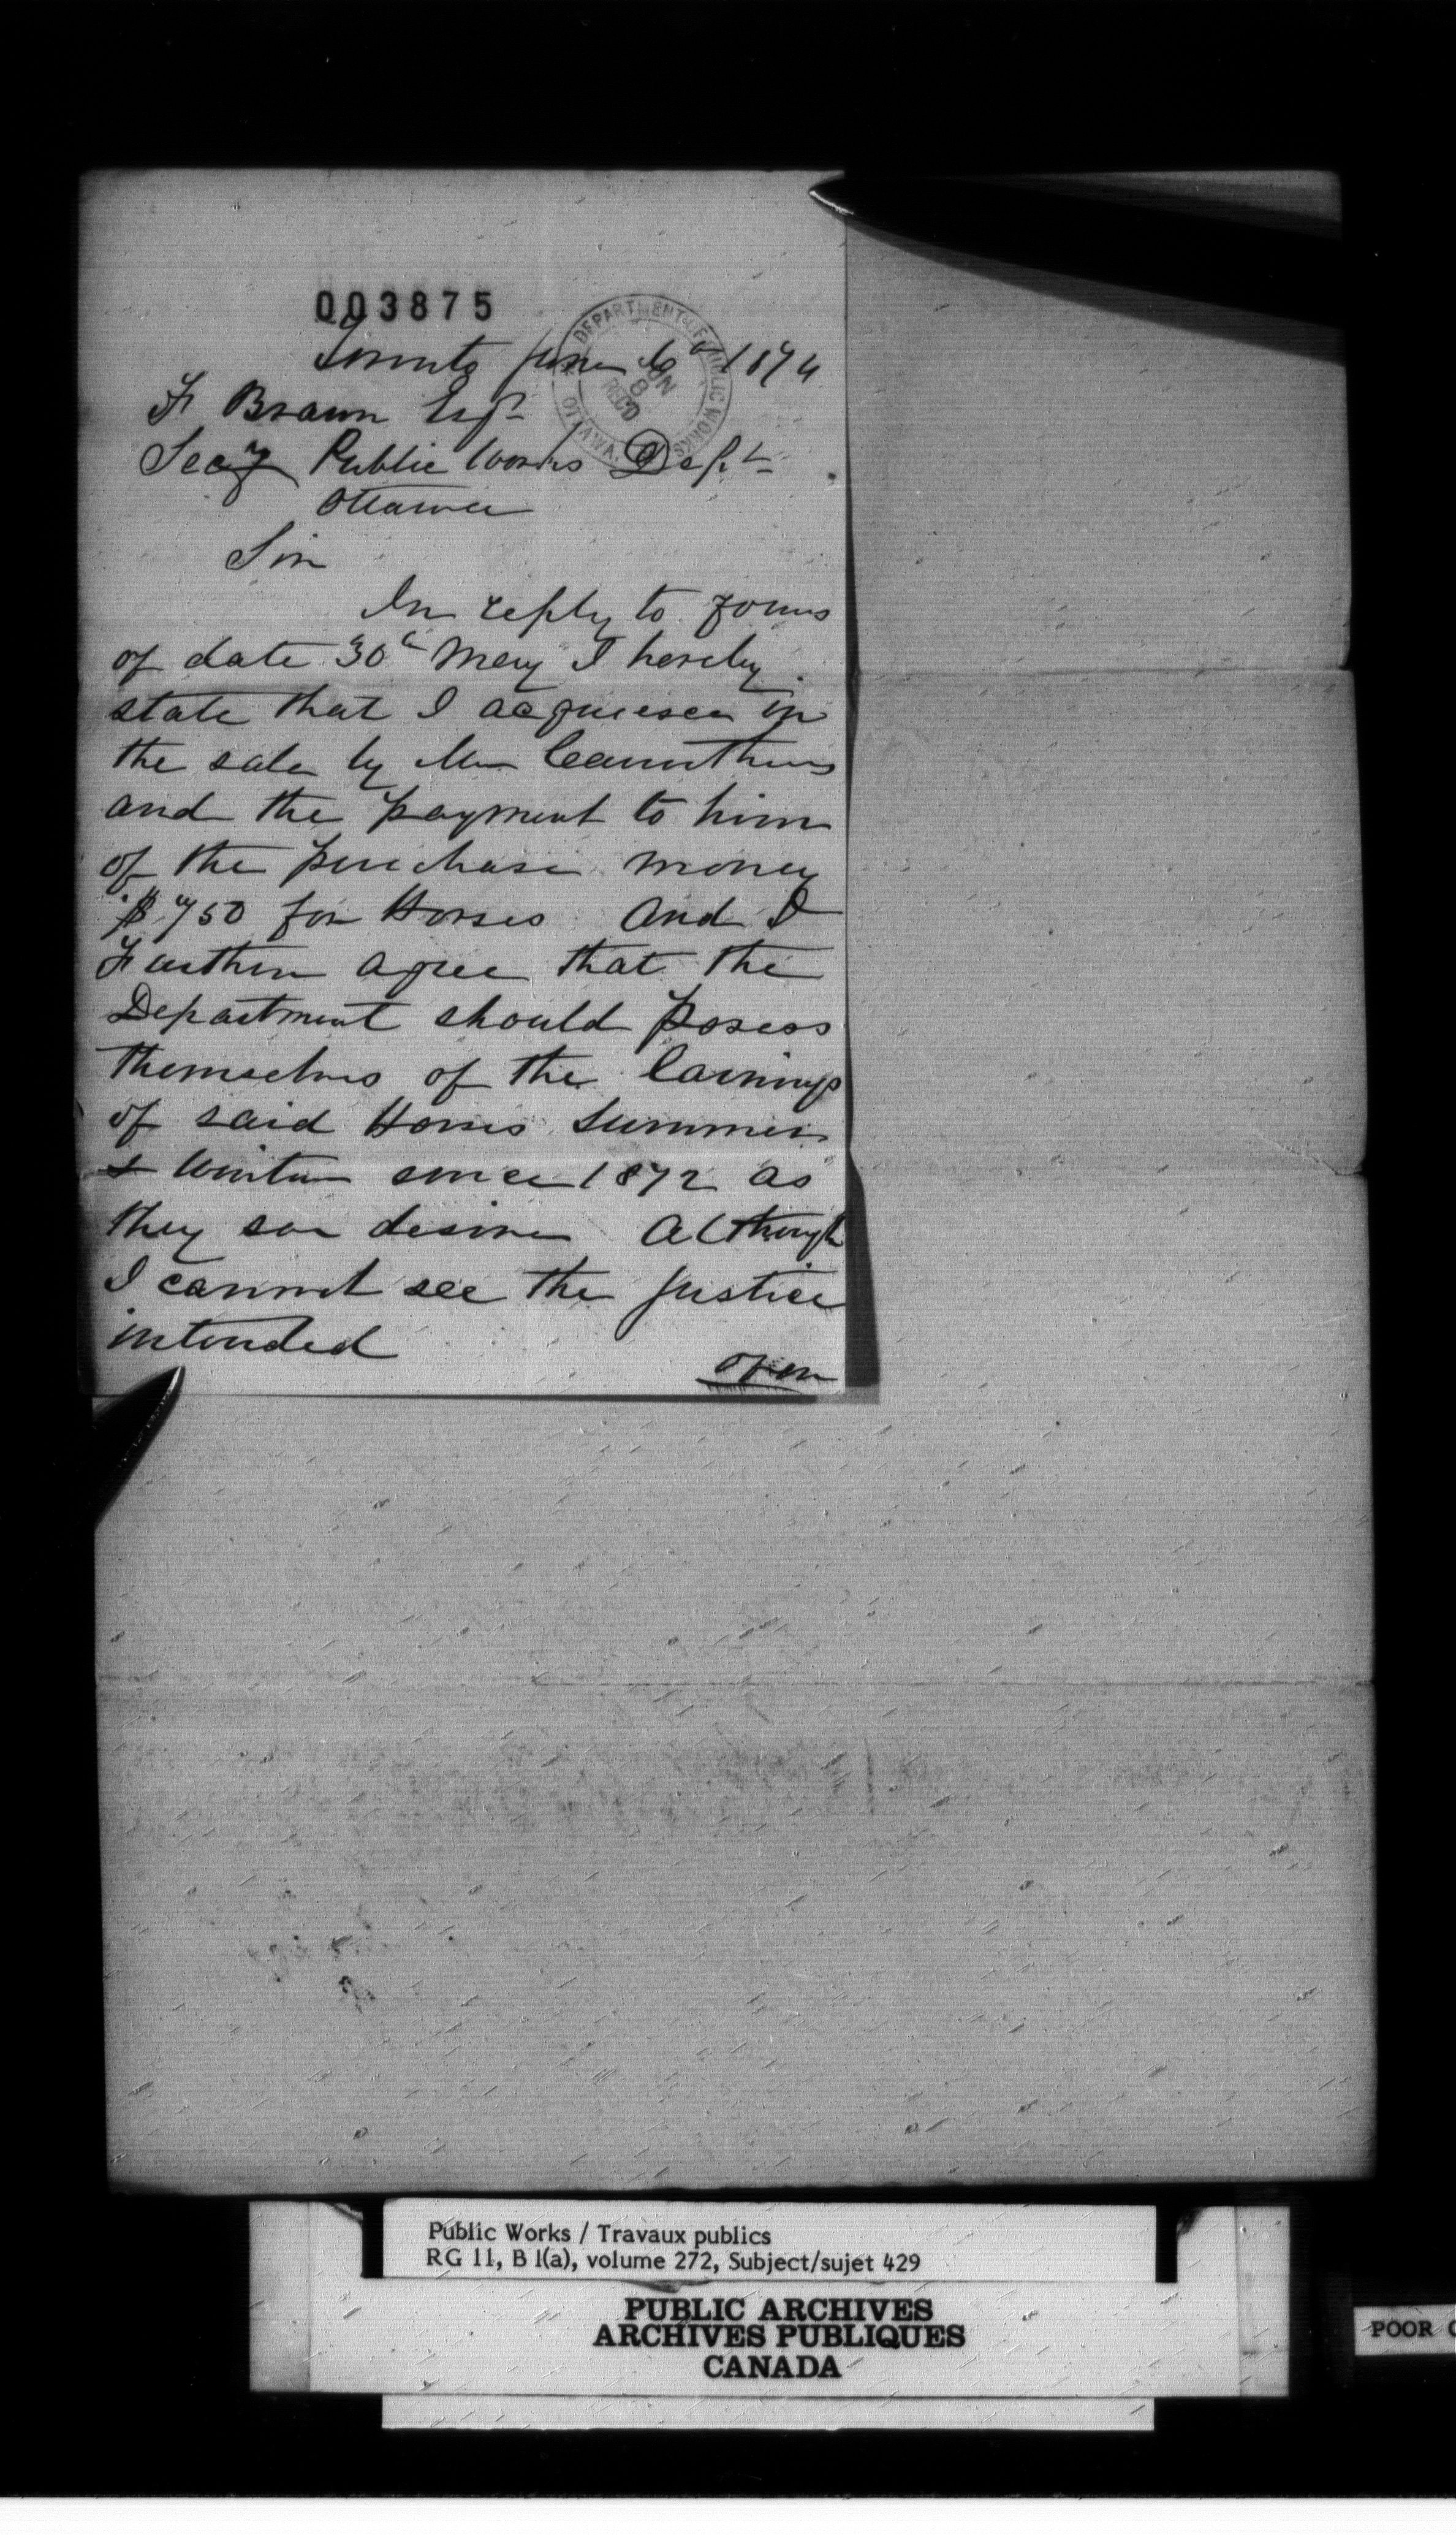 003875
DEPARTMENT OF PUBLIC WORKS
OTTAWA
JUN
8
REC'D
Toronto June 6th 1874
F Braun Esqr
Secy Public Works Dept
Ottawa
Sir
In reply to yours
of date 30th May I hereby
state that I acquiesce in
the sale by Mr Carruthers
and the payment to him
of the purchase money
$750 for Horses and I
Further agree that the
Department should posess
themselves of the Earnings
of said Horses Summer
& Winter since 1872 as
they soe desire Although
I cannot see the Justice
intended
over
Public Works / Travaux publics
RG 11, B 1(a), volume 272, Subject/sujet 429
PUBLIC ARCHIVES
ARCHIVES PUBLIQUES
CANADA
POOR